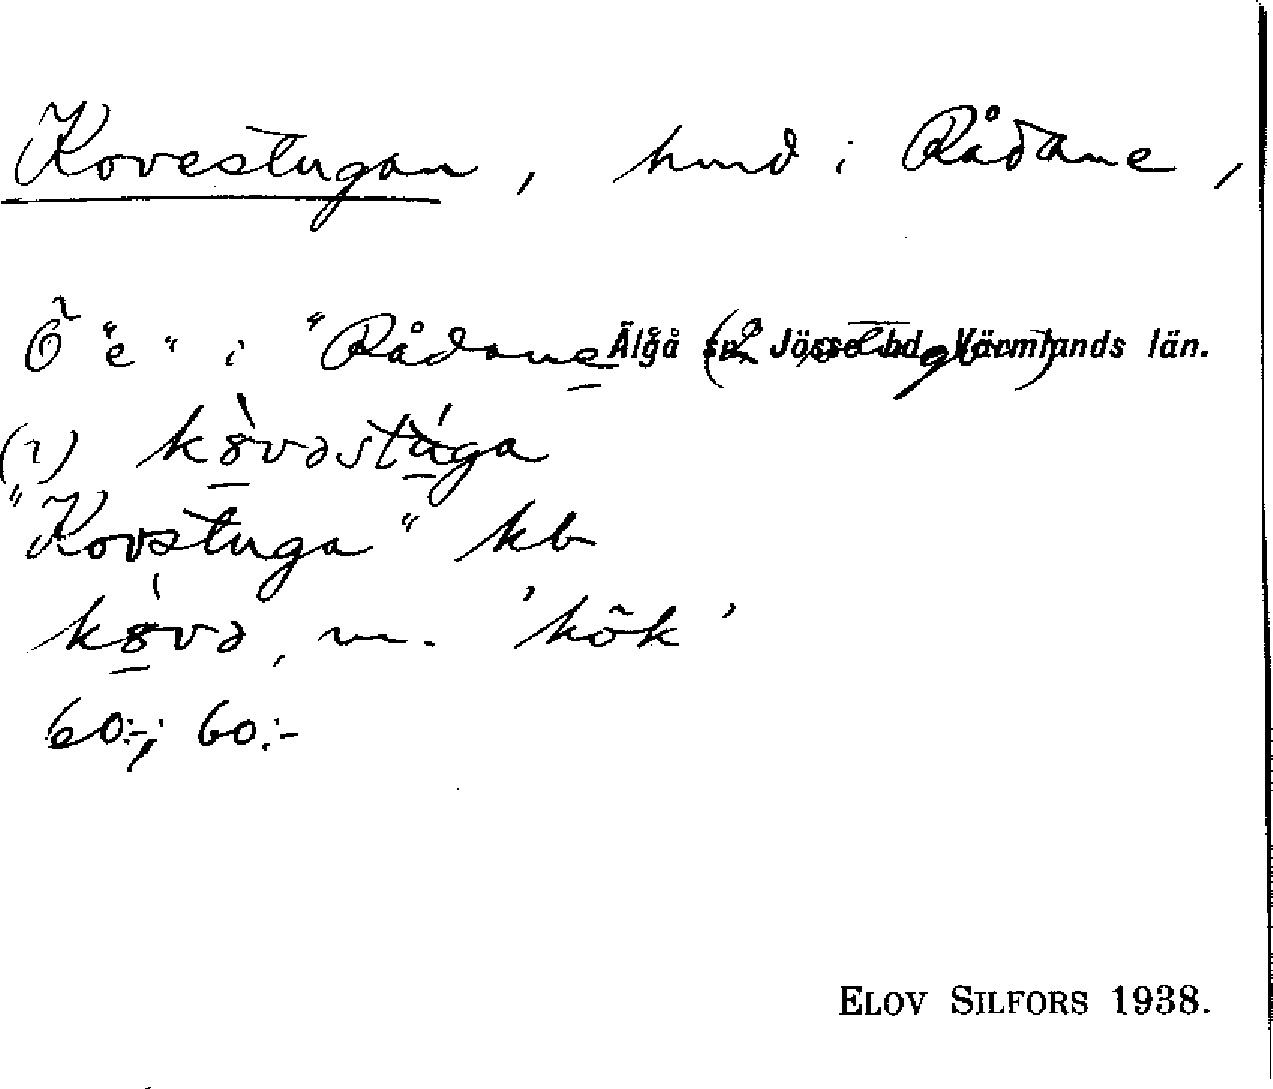 Kovestugan, hmd i Rådane,
Õ "e" i "Rådane Älgå sn Jösse hd Värmlands län.
(1) kòvəstúga
"Kovstuga" kb
kòvə, m. 'kök'
60:-; 60:-
ELOV SILFORS 1938.